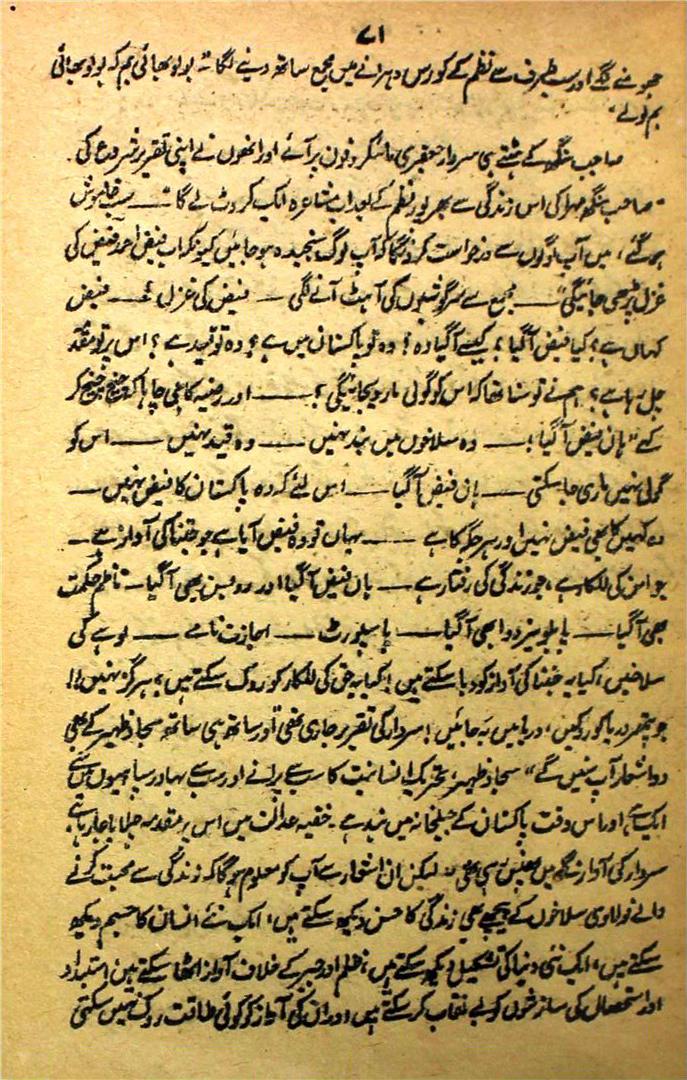 ۷۱
جھومنے لگے اور سب طرف سے نظم کے کورس دہرانے میں مجمع ساتھ دینے لگا "بولو بھائی ہم کہ بولو بھائی
ہم بولے"
صاحب سنگھ کے ہٹتے ہی سردار جعفری مائیکروفون پر آئے اور انھوں نے اپنی تقریر شروع کی
"صاحب سنگھ مہرا کی اس زندگی سے بھرپور نظم کے بعد اب مشاعرہ ایک کروٹ لے گا" — سب خاموش
ہو گئے، میں آپ لوگوں سے درخواست کرونگا کہ آپ لوگ سنجیدہ ہو جائیں کیونکہ اب فیض احمد فیض کی
غزل پڑھی جائیگی" — مجمع سے سرگوشیوں کی آہٹ آنے لگی — فیض کی غزل؟ — فیض
کہاں ہے؟ کیا فیض آگیا؟ کیسے آگیا وہ؟ وہ تو پاکستان میں ہے؟ وہ تو قید ہے؟ اس پر تو مقدمہ
چل رہا ہے؟ ہم نے تو سنا تھا کہ اس کو گولی مار دیجائیگی؟ — اور رضیہ کا جی چاہا کہ چیخ چیخ کر
کہے "ہاں فیض آگیا! — وہ سلاخوں میں بند نہیں — وہ قید نہیں — اس کو
گولی نہیں ماری جا سکتی — ہاں فیض آگیا — اس لئے کہ وہ پاکستان کا فیض نہیں —
وہ کہیں کا بھی فیض نہیں اور ہر جگہ کا ہے — یہاں تو وہ فیض آیا ہے جو جنتا کی آواز ہے —
جو امن کی للکار ہے، جو زندگی کی رفتار ہے — ہاں فیض آگیا اور روبسن بھی آگیا — ناظم حکمت
بھی آگیا — پابلو نیرودا بھی آگیا — پاسپورٹ — اجازت نامے — لوہے کی
سلاخیں، کیا یہ جنتا کی آواز کو دبا سکتے ہیں! کیا یہ حق کی للکار کو روک سکتے ہیں، ہرگز نہیں!!
جو پتھر دریا کو روکیں، دریا میں بہ جائیں! سردار کی تقریر جاری تھی "اور ساتھ ہی ساتھ سجاد ظہیر کے بھی
دو اشعار آپ سنیں گے" سجاد ظہیر، تحریک انسانیت کا سب سے پرانے اور سب سے بہادر سپاہیوں میں سے
ایک ہے اور اس وقت پاکستان کے جیلخانہ میں بند ہے۔ خفیہ عدالت میں اس پر مقدمہ چلایا جا رہا ہے
سردار کی آواز سنگھ میں رہی تھی "لیکن ان اشعار سے آپ کو معلوم ہوگا کہ زندگی سے محبت کرنے
والے فولادی سلاخوں کے پیچھے بھی زندگی کا حسن دیکھ سکتے ہیں، ایک نئے انسان کا جسم دیکھ
سکتے ہیں، ایک نئی دنیا کی تشکیل دیکھ سکتے ہیں، ظلم اور جبر کے خلاف آواز اٹھا سکتے ہیں استبداد
اور استحصال کی سازشوں کو بے نقاب کر سکتے ہیں اور ان کی آواز کو کوئی طاقت روک نہیں سکتی